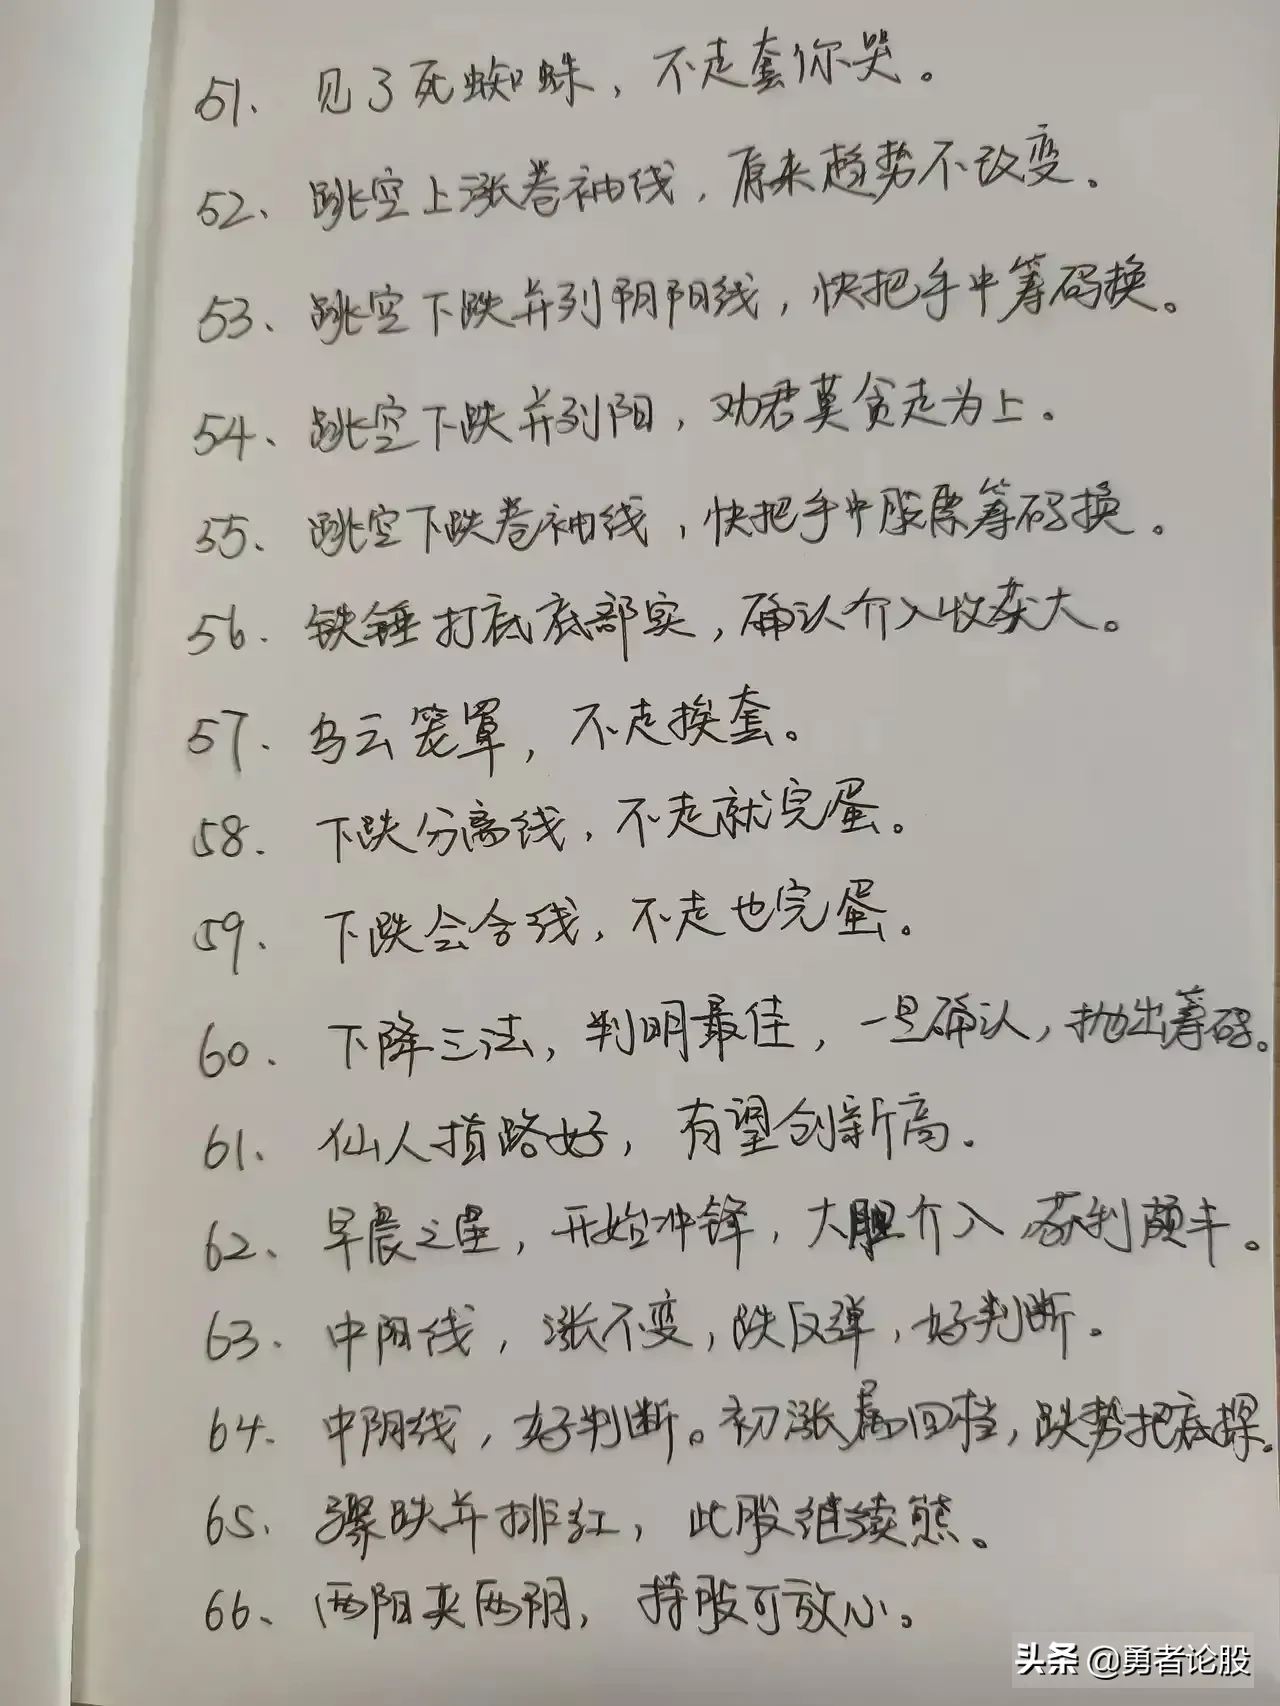 51. 见了死蜘蛛，不走套你哭。
52、跳空上涨卷袖线，原来趋势不改变。
53、跳空下跌并列阴阳线，快把手中筹码换。
54、跳空下跌并列阳，劝君莫贪走为上。
55、跳空下跌卷袖线，快把手中股票筹码换。
56. 铁锤打底底部实，确认介入收获大。
57. 乌云笼罩，不走挨套。
58. 下跌分离线，不走就完蛋。
59. 下跌会合线，不走也完蛋。
60. 下降三法，判明最佳，一旦确认，抛出筹码。
61. 仙人指路好，有望创新高。
62、早晨之星，开始冲锋，大胆介入获利颇丰。
63. 中阳线，涨不变，跌反弹，好判断。
64. 中阴线，好判断。初涨属回档，跌势把底探。
65. 骤跌并排红，此股继续熊。
66、两阳夹两阴，持股可放心。
头条 @勇者论股